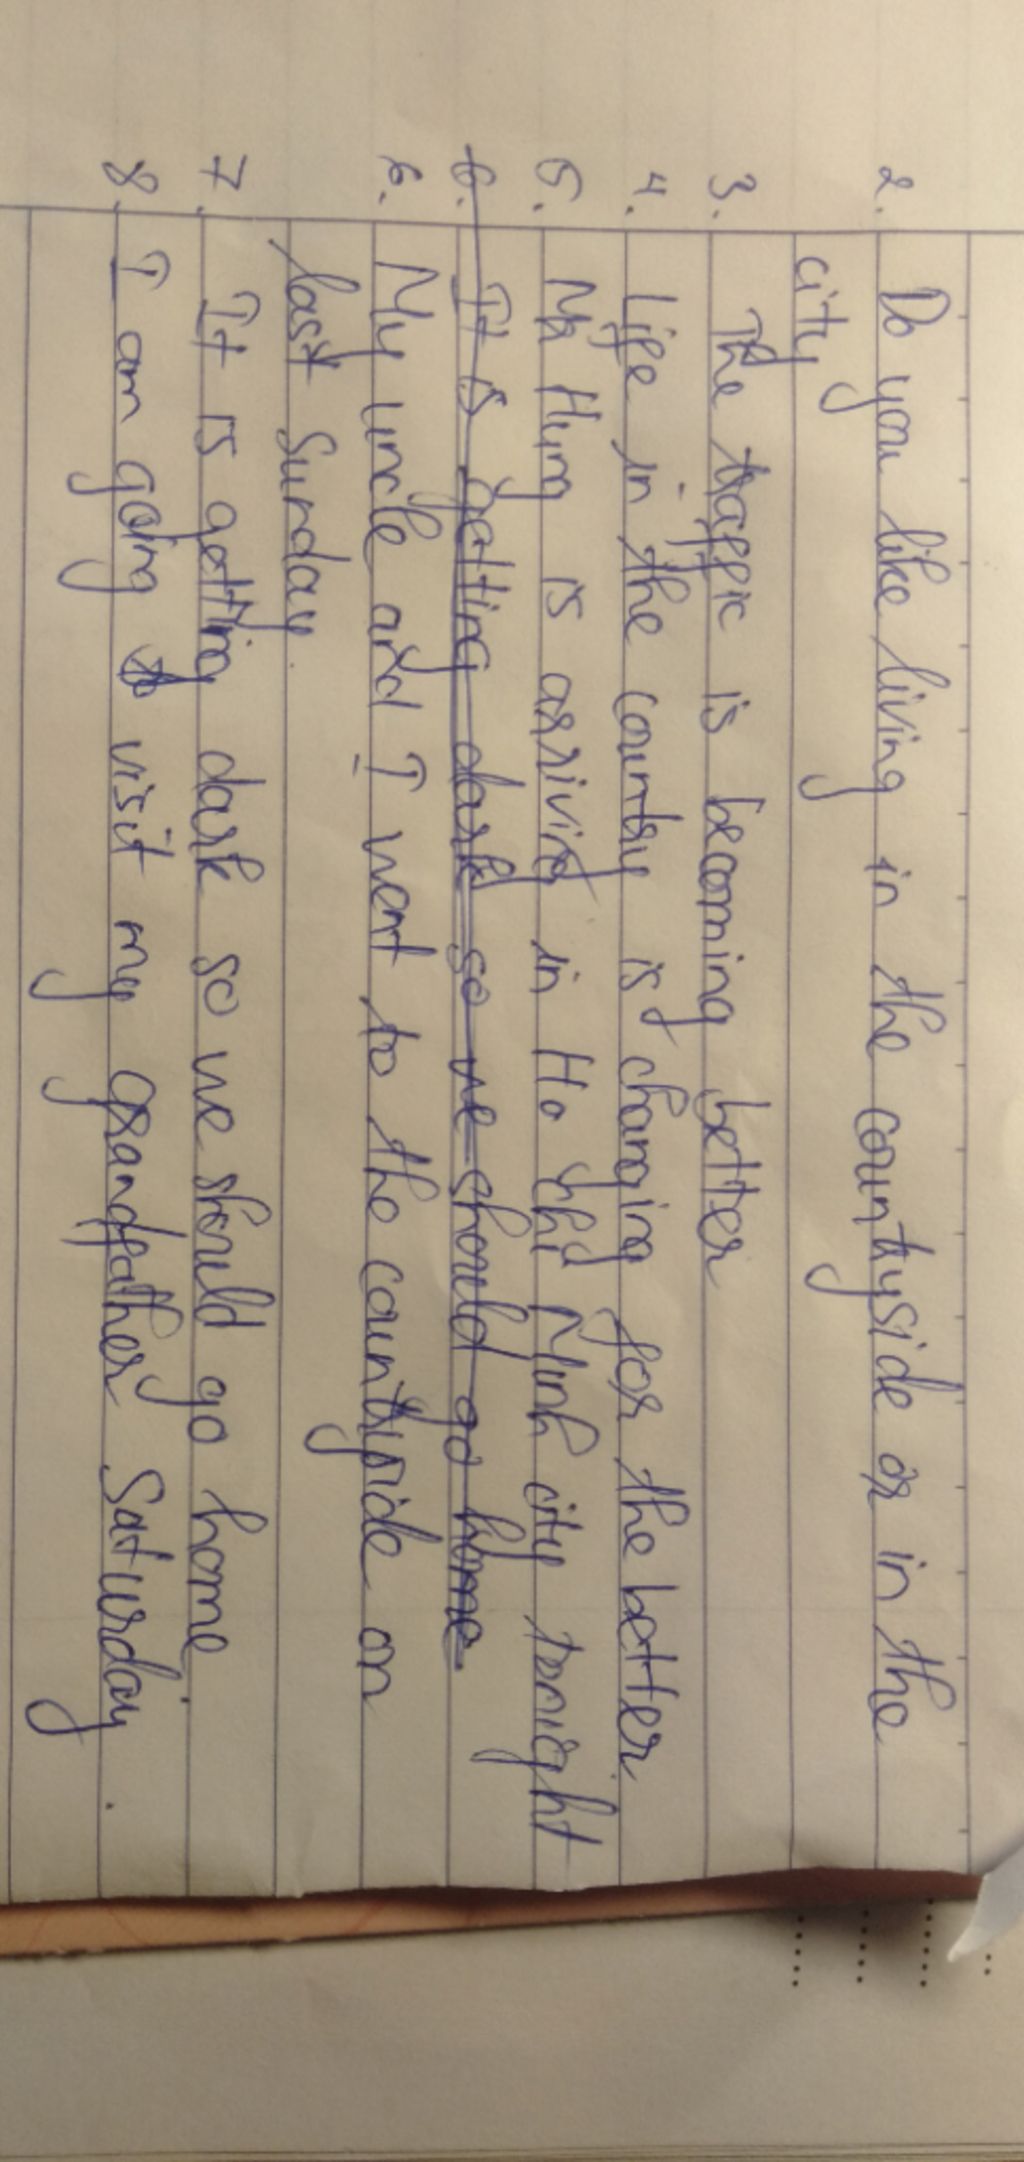 2. Do you like living in the countryside or in the
city
3. The traffic is becoming better
4. Life in the country is changing for the better.
5. Mr Hung is arriving in Ho Chi Minh city tonight
6. It is getting dark so we should go home.
6. My uncle and I went to the countryside on
last Sunday.
7. It is getting dark so we should go home.
8. I am going to visit my grandfather Saturday.